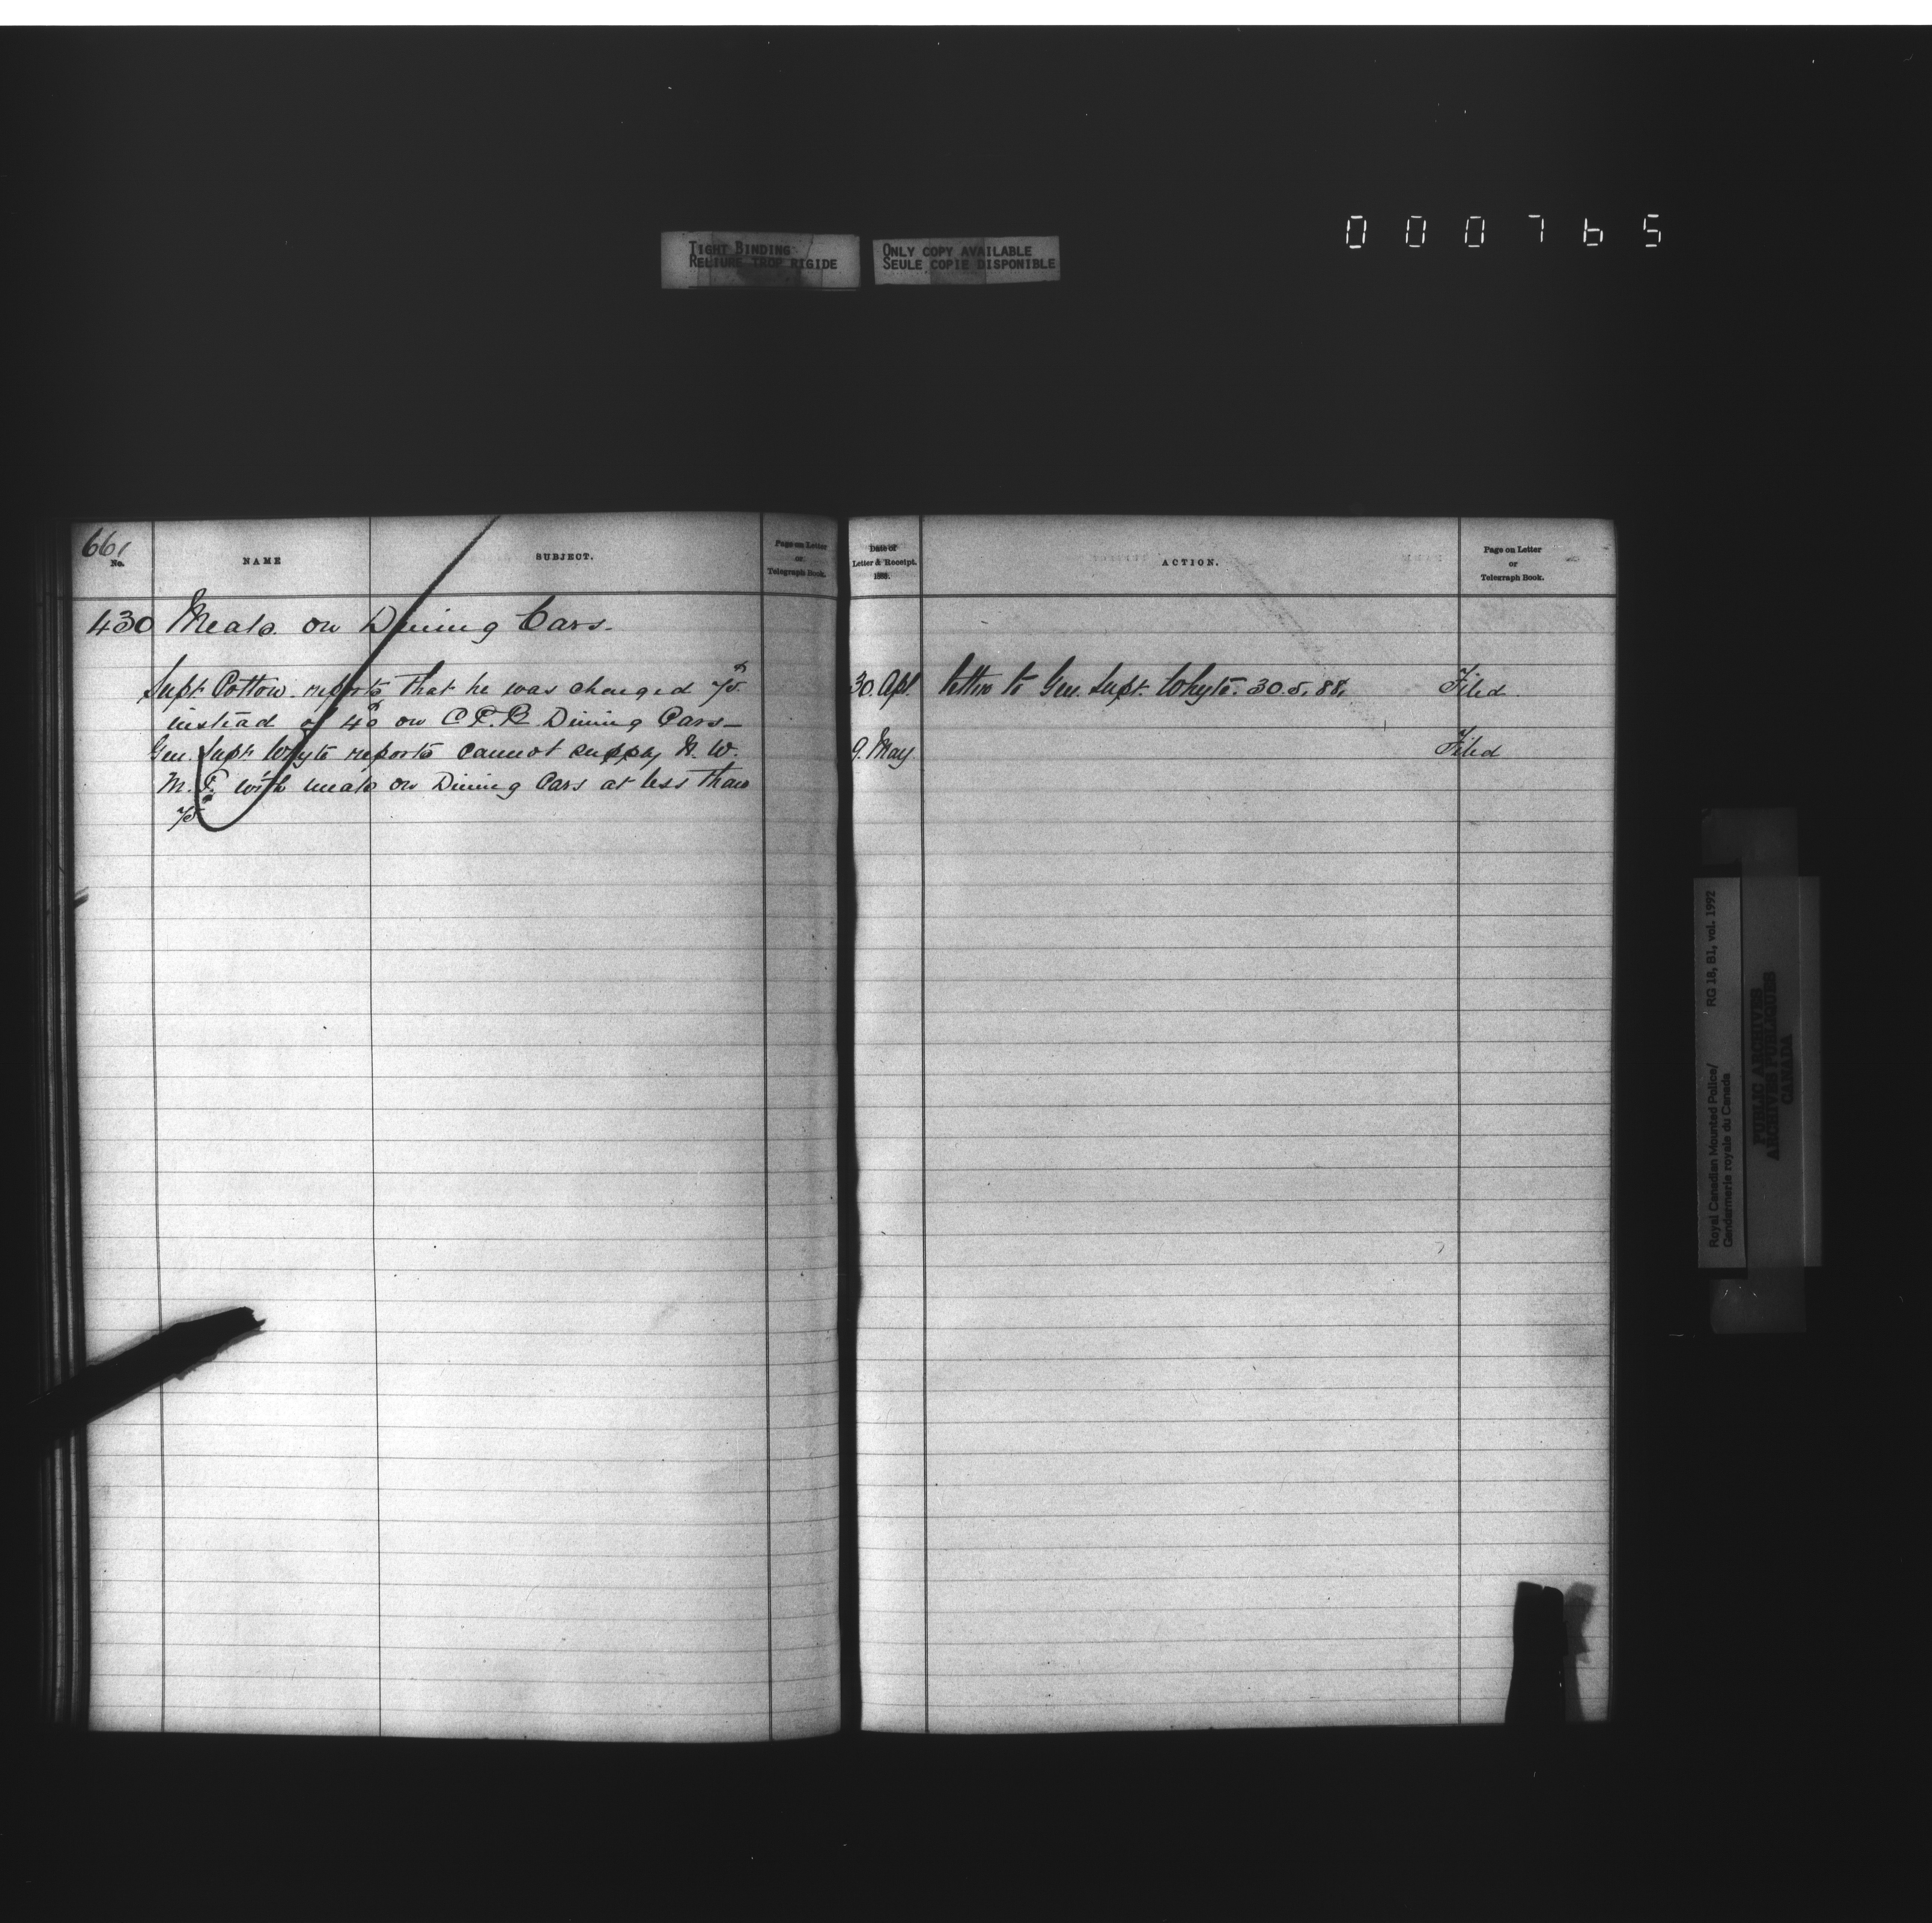 000765
TIGHT BINDING
RELIURE TROP RIGIDE
ONLY COPY AVAILABLE
SEULE COPIE DISPONIBLE
661
No.
NAME
SUBJECT.
Page on Letter
or
Telegraph Book.
Date of
Letter & Receipt.
1888.
ACTION.
Page on Letter
or
Telegraph Book.
430 Meals on Dining Cars.
Supt. Cotton reports that he was charged 75¢
instead of 40 on C.P.R. Dining Cars—
30. Apl. letter to Gen. Supt. Whyte. 30.5.88. Filed.
Gen. Supt. Whyte reports cannot supply N. W.
M. P. with meals on Dining Cars at less than
75
9. May Filed
Royal Canadian Mounted Police/
Gendarmerie royale du Canada
RG 18, B1, vol. 1992
PUBLIC ARCHIVES
ARCHIVES PUBLIQUES
CANADA